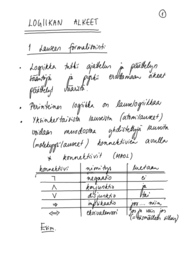 1
LOGIIKAN ALKEET
1 Lauseen formalisointi
• Logiikka tutkii ajattelun ja päättelyn
sääntöjä ja pyrkii erottamaan oikeat
päättelyt vääristä.
• Perinteinen logiikka on lauselogiikkaa
• Yksinkertaisista lauseista (atomilauseet)
voidaan muodostaa yhdistettyjä lauseita
(molekyylilauseet) konnektiivien avulla
* konnektiivit
konnektiivi nimitys luetaan
¬ negaatio ei
∧ konjunktio ja
∨ disjunktio tai
⇒ implikaatio jos ... niin
⇔ ekvivalenssi jos ja vain jos
Esim.